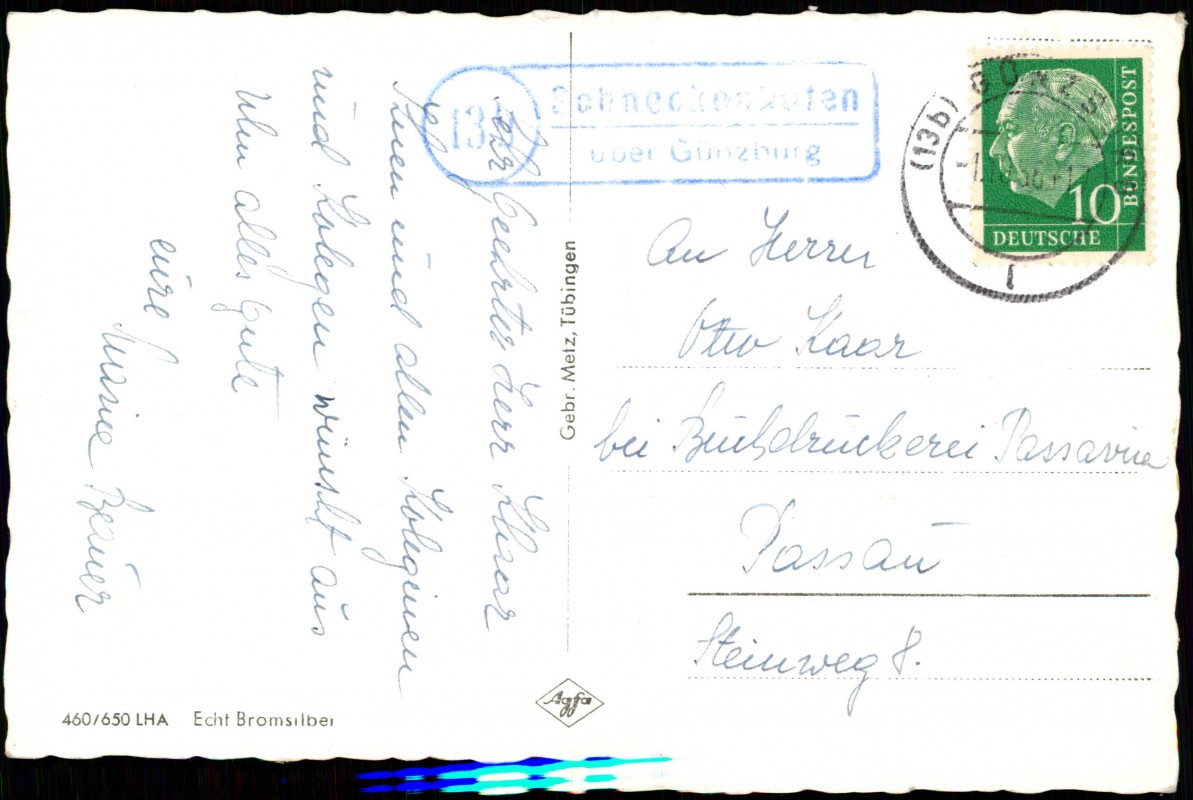 Sehr Geehrter Herr Khaar
Ihnen und allen Koleginen
und Kolegen wünscht aus
Ulm alles Gute
eure
Maria Bauer
(13b)
Schneckenhofen
über Günzburg
(13b) GÜNZB
BUNDESPOST
10
DEUTSCHE
An Herrn
Otto Kaar
bei Buchdruckerei Passavia
Passau
Steinweg 8.
Gebr. Metz, Tübingen
Agfa
460/650 LHA Echt Bromsilber